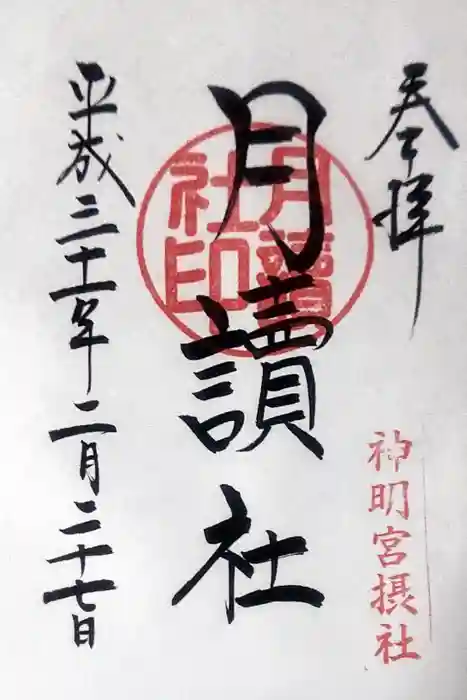 奉拝
神明宮摂社
月讀社
月讀社印
平成三十一年二月二十七日